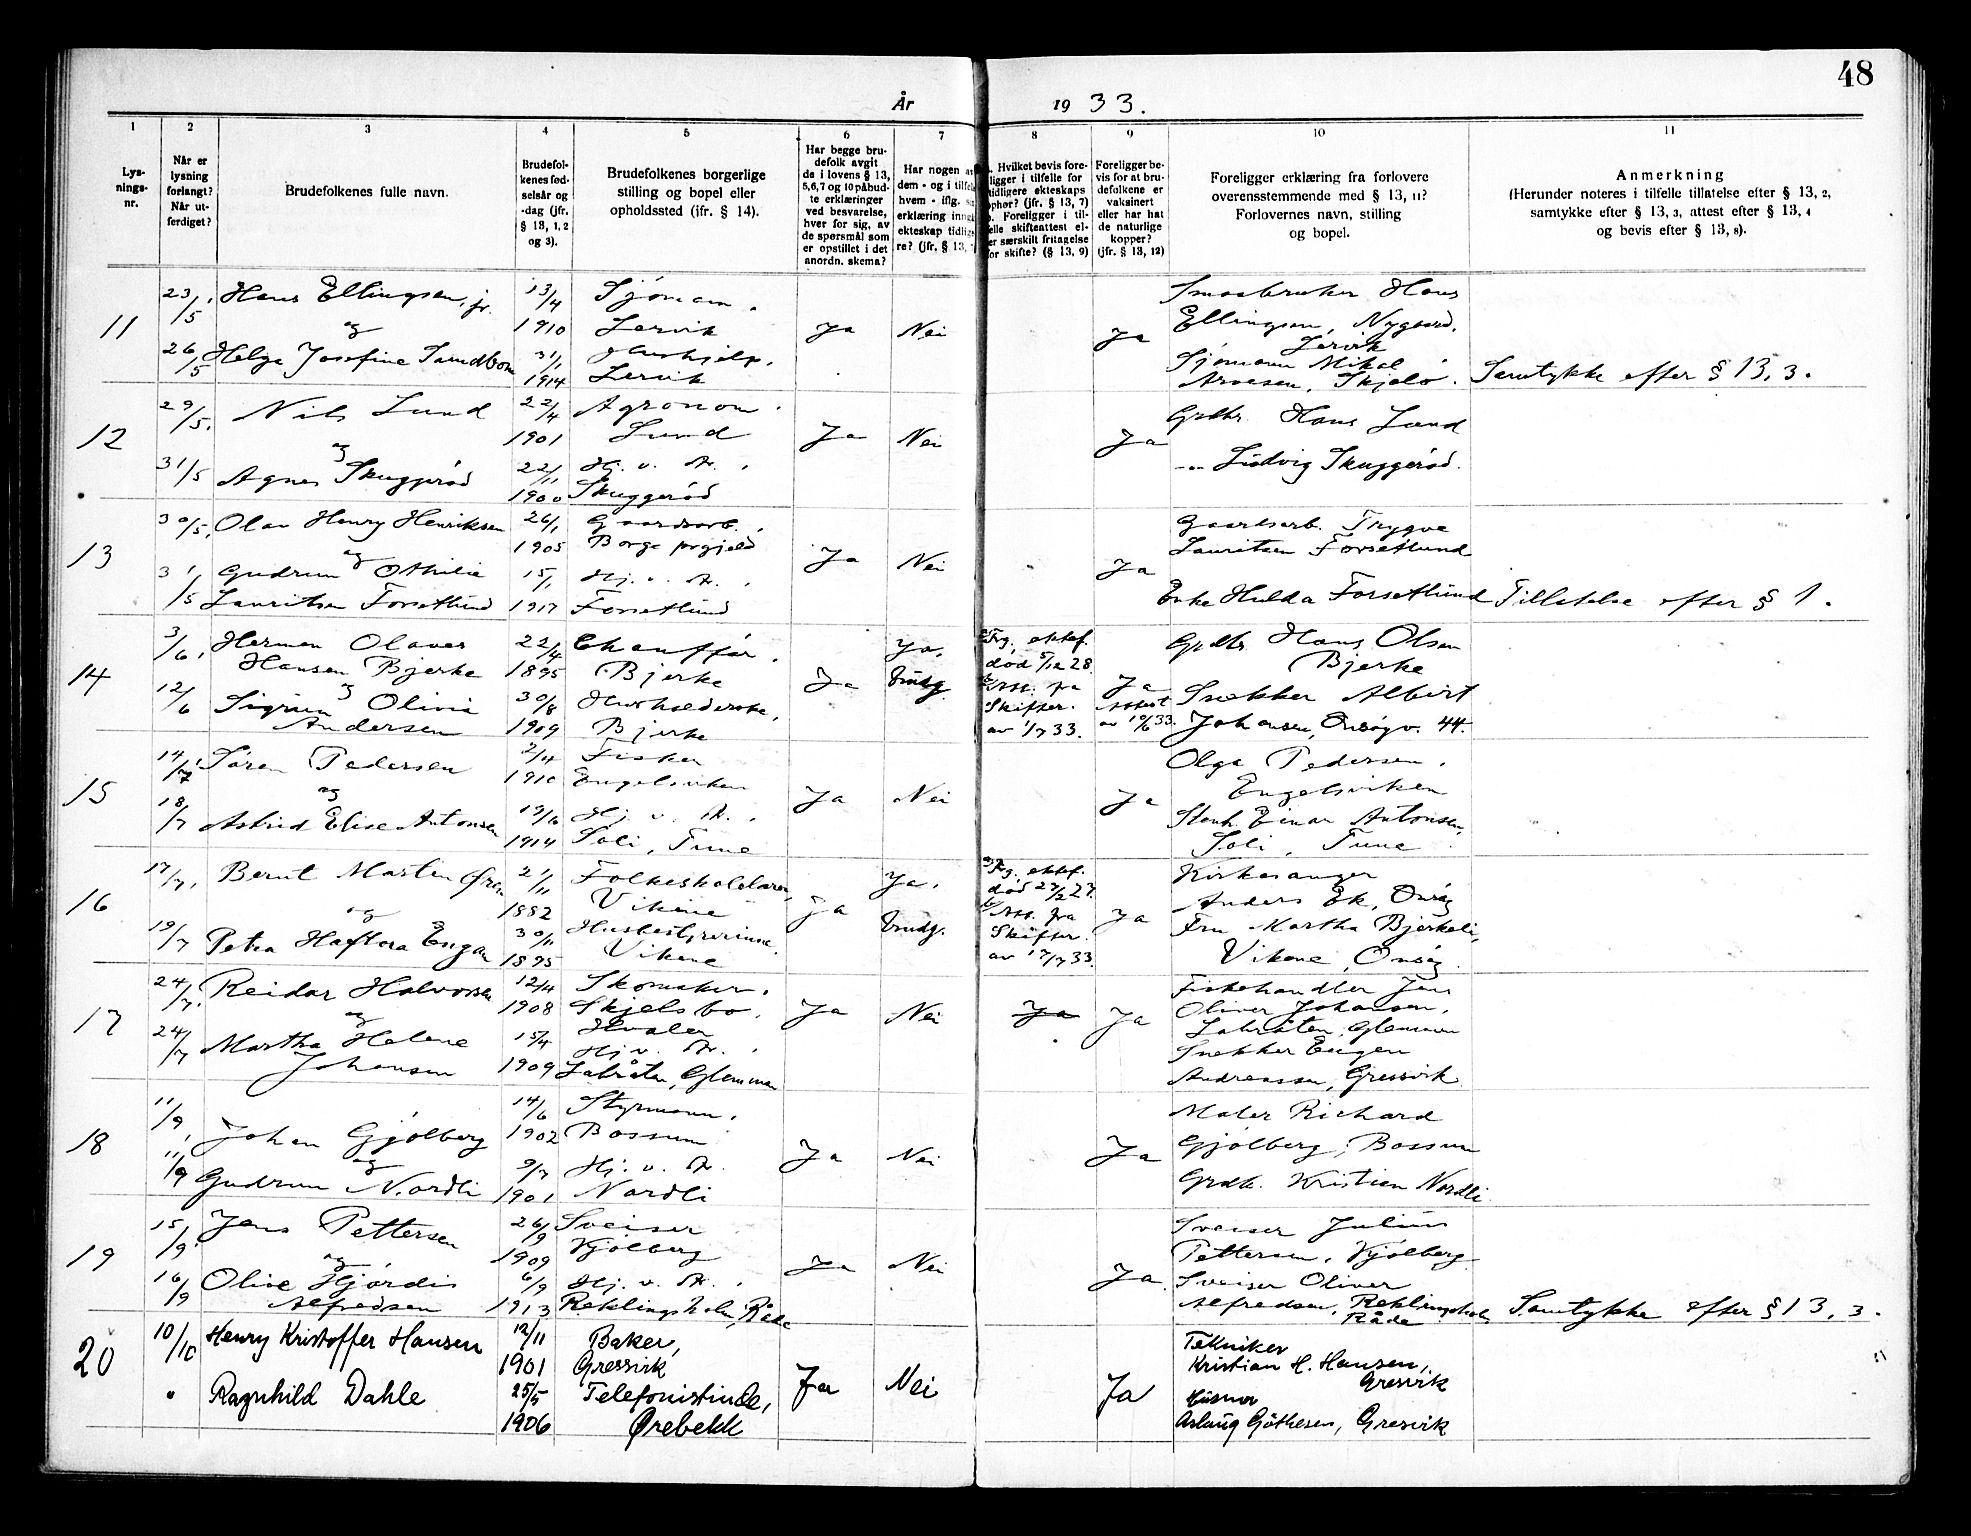 48
År 1933.
1 2 3 4 5 6 7 8 9 10 11
Lys-
nings-
nr.
Når er
lysning
forlangt?
Når ut-
ferdiget?
Brudefolkenes fulle navn.
Brudefol-
kenes fød-
selsår og
-dag (jfr.
§ 13, 1, 2
og 3).
Brudefolkenes borgerlige
stilling og bopel eller
opholdssted (jfr. § 14).
Har begge bru-
defolk avgit
de i lovens § 13,
5,6,7 og 10 påbud-
te erklæringer
ved besvarelse,
hver for sig, av
de spørsmål som
er opstillet i det
anordn. skema?
Har nogen a
dem - og i tilfel
hvem - iflg.
erklæring inng
ekteskap tidlig
re? (jfr. § 13,
Hvilket bevis fore-
ligger i tilfelle for
tidligere ekteskaps
ophør? (jfr. § 13, 7)
b. Foreligger i til-
felle skifteattest el-
ler særskilt fritagelse
for skifte? (§ 13, 9)
Foreligger be-
vis for at bru-
defolkene er
vaksinert
eller har hat
de naturlige
kopper?
(jfr. § 13, 12)
Foreligger erklæring fra forlovere
overensstemmende med § 13, 11?
Forlovernes navn, stilling
og bopel.
Anmerkning
(Herunder noteres i tilfelle tillatelse efter § 13, 2,
samtykke efter § 13, 3, attest efter § 13, 4
og bevis efter § 13, 8).
11
23/5 Hans Ellingsen, jr. 13/4 Sjömann. Smaabruker Hans
og 1910 Lervik Ja Nei Ja Ellingsen, Nygaard,
Lervik
26/5 Helga Josefine 31/1 Hushjelp. Sjömann Mikal
1914 Lervik Arvesen, Skjelö. Samtykke efter § 13, 3.
12
29/5. Nils Lund 22/4 Agronom. Grdbr. Hans Lund
1901 Lund Ja Nei Ja
og
31/5 Agnes Skuggeröd 22/11 Hj. v. A. -"- Ludvig Skuggeröd.
1900 Skuggeröd
13
30/5. Olav Henry Henriksen 26/1 Gaardsarb. Gaardsarb. Trygve
1905 Borge prgjeld Ja Nei Ja Lauritsen Forsetlund
31/5 Gudrun og Othilie 15/1 Hj. v. A.
Lauritsen Forsetlund 1917 Forsetlund Enke Hulda Forsetlund Tillatelse efter § 1.
14
3/6. Herman Olaves 22/4 Chauffør. Ja. Frg. ektef. Grdbr. Hans Olsen
Hansen Bjerke 1895 Bjerke Ja død 5/12 28 Ja Bjerke
12/6 og Sigrun Olivia 30/8 Husholderske, Att. fra Attest Snekker Albert
Andersen 1909 Bjerke Skifter. av 10/6 33. Johansen, Onsöyv. 44.
av 1/7 33.
15
14/7 Sören Pedersen 2/4 Fisker Olga Pedersen.
og 1910 Engelsviken Ja Nei Ja Engelsviken
18/7 Astrid Elise Antonsen 19/6 Hj. v. A. Stenh. Einar Antonsen,
1914 Soli, Tune Soli, Tune
16
17/7. Bernt Martin 21/11 Ja. Frg. ektef. Kirkesanger
1882 Vikene Ja død 27/2 27 Ja Anders Ek, Onsöy
og
19/7 Petra 30/1 Husbestyrerinne. Att. fra Fru Martha Bjerkeli,
1895 Vikene Skifter. Vikene, Onsöy.
av 17/7 33.
17
24/7. Reidar Halvorsen 12/4 Skomaker. Fiskehandler Jens
og 1908 Skjelsbo. Ja Nei Ja Ja Oliver Johansen,
Hvaler Labråten, Glemmen
24/7 Martha Helene 15/4 Hj. v. A. Snekker Eugen
Johansen 1909 Labråten, Glemmen Andreassen, Gressvik
18
11/9. Johan Gjölberg 14/6 Styrmann. Maler Richard
1902 Bossum Ja Nei Ja Gjölberg, Bossum
og
11/9 Gudrun Nordli 9/7 Hj. v. A. Grdb. Kristian Nordli
1901 Nordli
19
15/9. Jens Pettersen 26/9 Sveiser Sveiser Julius
og 1909 Kjölberg Ja Nei Ja Pettersen, Kjölberg
16/9 Olive Hjördis 6/9 Hj. v. A. Sveiser Oliver
Alfredsen 1913 Reklingsholm, Råde Alfredsen, Reklingsholm, Råde Samtykke efter § 13, 3.
20
10/10 Henry Kristoffer Hansen 12/11 Baker, Tekniker
1901 Gressvik Ja Nei Ja Kristian H. Hansen,
Gresvik
" Ragnhild Dahle 25/5 Telefonistinde, Husmor
1906 Ørebekk Aslaug Göthesen, Gresvik